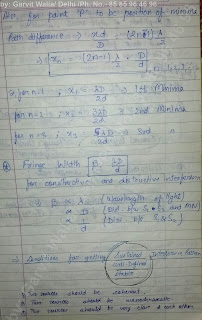 by: Garvit Wali Delhi /Ph. No.- 85 85 96 45 96
Also, for point 'P' to be position of minima
Path difference → xd/D = (2n-1) λ/2
x = (2n-1) λ/2 D/d
for n=1, x₁ = λD/2d → 1st Minima
for n=2, x₂ = 3λD/2d → 2nd Minima
for n=3, x₃ = 5λD/2d → 3rd "
Fringe Width β = λD/d
for constructive and destructive interference
β ∝ λ (Wavelength of light)
∝ D
∝ 1/d (Dist. b/w S₁ & S₂)
→ Conditions for getting Sustained interference pattern
Well Defined
Stable
Two sources should be coherent.
Two sources should be monochromatic
Two sources should be very close to each other